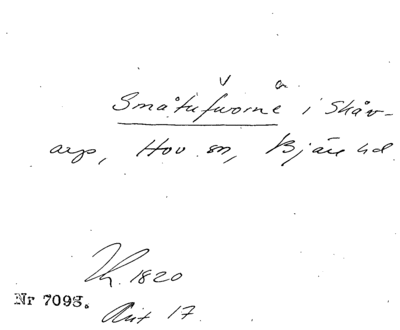 v a
Småtufvorne i Skåv-
arp, Hov sn, Bjäre hd
1820
Nr 7093.
Ant 17